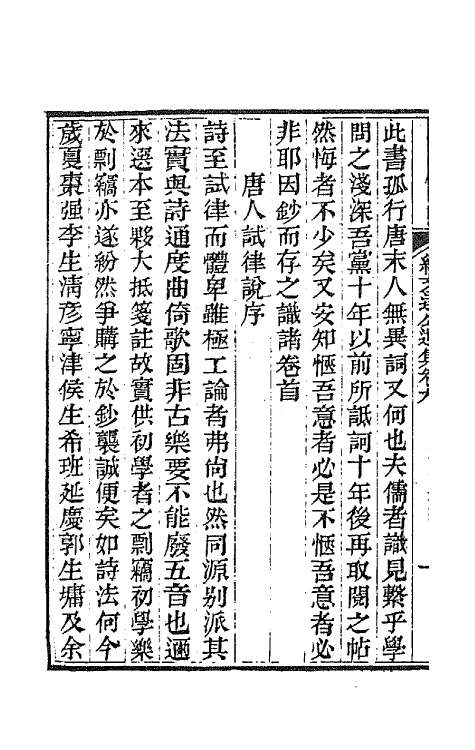 紀文達公遺集卷九
此書孤行唐末人無異詞又何也夫儒者識見繫乎學
問之淺深吾黨十年以前所詆訶十年後再取閱之帖
然悔者不少矣又安知愜吾意者必是不愜吾意者必
非耶因鈔而存之識諸卷首
唐人試律說序
詩至試律而體卑雖極工論者弗尙也然同源別派其
法實與詩通度曲倚歌固非古樂要不能廢五音也邇
來選本至夥大抵箋註故實供初學者之剽竊初學樂
於剽竊亦遂紛然爭購之於鈔襲誠便矣如詩法何今
歲夏棗强李生淸彥寧津侯生希班延慶郭生墉及余